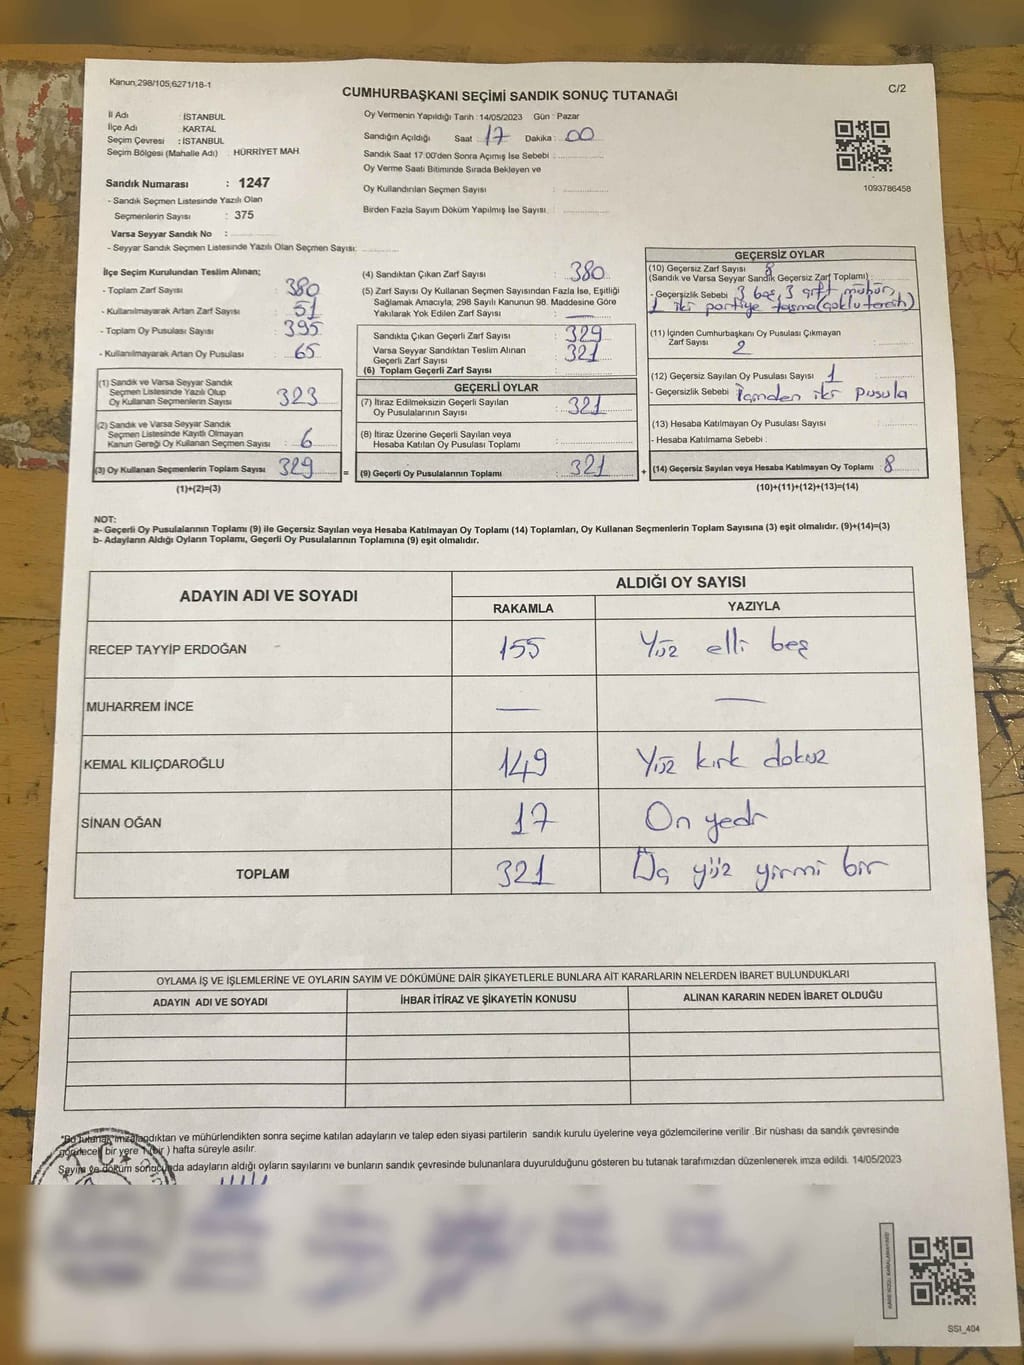 Kanun,298/105;6271/18-1
C/2
CUMHURBAŞKANI SEÇİMİ SANDIK SONUÇ TUTANAĞI
İl Adı : İSTANBUL
İlçe Adı : KARTAL
Seçim Çevresi : İSTANBUL
Seçim Bölgesi (Mahalle Adı) : HÜRRİYET MAH.
Sandık Numarası : 1247
- Sandık Seçmen Listesinde Yazılı Olan
Seçmenlerin Sayısı : 375
Varsa Seyyar Sandık No :
- Seyyar Sandık Seçmen Listesinde Yazılı Olan Seçmen Sayısı:
Oy Vermenin Yapıldığı Tarih : 14/05/2023 Gün : Pazar
Sandığın Açıldığı Saat : 17 Dakika : 00
Sandık Saat 17:00'den Sonra Açımış İse Sebebi :
Oy Verme Saati Bitiminde Sırada Bekleyen ve
Oy Kullandırılan Seçmen Sayısı :
Birden Fazla Sayım Döküm Yapılmış İse Sayısı :
1093786458
İlçe Seçim Kurulundan Teslim Alınan;
- Toplam Zarf Sayısı : 380
- Kullanılmayarak Artan Zarf Sayısı : 51
- Toplam Oy Pusulası Sayısı : 395
- Kullanılmayarak Artan Oy Pusulası : 65
(1) Sandık ve Varsa Seyyar Sandık
Seçmen Listesinde Yazılı Olup
Oy Kullanan Seçmenlerin Sayısı : 323
(2) Sandık ve Varsa Seyyar Sandık
Seçmen Listesinde Kayıtlı Olmayan
Kanun Gereği Oy Kullanan Seçmen Sayısı : 6
(3) Oy Kullanan Seçmenlerin Toplam Sayısı : 329
(1)+(2)=(3)
(4) Sandıktan Çıkan Zarf Sayısı : 380
(5) Zarf Sayısı Oy Kullanan Seçmen Sayısından Fazla İse, Eşitliği
Sağlamak Amacıyla; 298 Sayılı Kanunun 98. Maddesine Göre
Yakılarak Yok Edilen Zarf Sayısı : —
Sandıkta Çıkan Geçerli Zarf Sayısı : 329
Varsa Seyyar Sandıktan Teslim Alınan
Geçerli Zarf Sayısı : 321
(6) Toplam Geçerli Zarf Sayısı :
GEÇERLİ OYLAR
(7) İtiraz Edilmeksizin Geçerli Sayılan
Oy Pusulalarının Sayısı : 321
(8) İtiraz Üzerine Geçerli Sayılan veya
Hesaba Katılan Oy Pusulası Toplamı :
= (9) Geçerli Oy Pusulalarının Toplamı : 321 +
GEÇERSİZ OYLAR
(10) Geçersiz Zarf Sayısı 8
(Sandık ve Varsa Seyyar Sandık Geçersiz Zarf Toplamı) :
- Geçersizlik Sebebi : 3 boş, 3 çift mühür,
1 iki partiye taşma (çoklu tercih)
(11) İçinden Cumhurbaşkanı Oy Pusulası Çıkmayan
Zarf Sayısı 2 :
(12) Geçersiz Sayılan Oy Pusulası Sayısı : 1
- Geçersizlik Sebebi : İçinden iki pusula
(13) Hesaba Katılmayan Oy Pusulası Sayısı :
- Hesaba Katılmama Sebebi :
(14) Geçersiz Sayılan veya Hesaba Katılmayan Oy Toplamı : 8
(10)+(11)+(12)+(13)=(14)
NOT:
a- Geçerli Oy Pusulalarının Toplamı (9) ile Geçersiz Sayılan veya Hesaba Katılmayan Oy Toplamı (14) Toplamları, Oy Kullanan Seçmenlerin Toplam Sayısına (3) eşit olmalıdır. (9)+(14)=(3)
b- Adayların Aldığı Oyların Toplamı, Geçerli Oy Pusulalarının Toplamına (9) eşit olmalıdır.
ADAYIN ADI VE SOYADI ALDIĞI OY SAYISI
RAKAMLA YAZIYLA
RECEP TAYYİP ERDOĞAN 155 Yüz elli beş
MUHARREM İNCE — —
KEMAL KILIÇDAROĞLU 149 Yüz kırk dokuz
SİNAN OĞAN 17 On yedi
TOPLAM 321 Üç yüz yirmi bir
OYLAMA İŞ VE İŞLEMLERİNE VE OYLARIN SAYIM VE DÖKÜMÜNE DAİR ŞİKAYETLERLE BUNLARA AİT KARARLARIN NELERDEN İBARET BULUNDUKLARI
ADAYIN ADI VE SOYADI İHBAR İTİRAZ VE ŞİKAYETİN KONUSU ALINAN KARARIN NEDEN İBARET OLDUĞU
"Bu tutanak" imzalandıktan ve mühürlendikten sonra seçime katılan adayların ve talep eden siyasi partilerin sandık kurulu üyelerine veya gözlemcilerine verilir .Bir nüshası da sandık çevresinde
görülecek bir yere 1 (bir ) hafta süreyle asılır.
Sayım ve döküm sonucunda adayların aldığı oyların sayılarını ve bunların sandık çevresinde bulunanlara duyurulduğunu gösteren bu tutanak tarafımızdan düzenlenerek imza edildi. 14/05/2023
T.C.
SSI_404